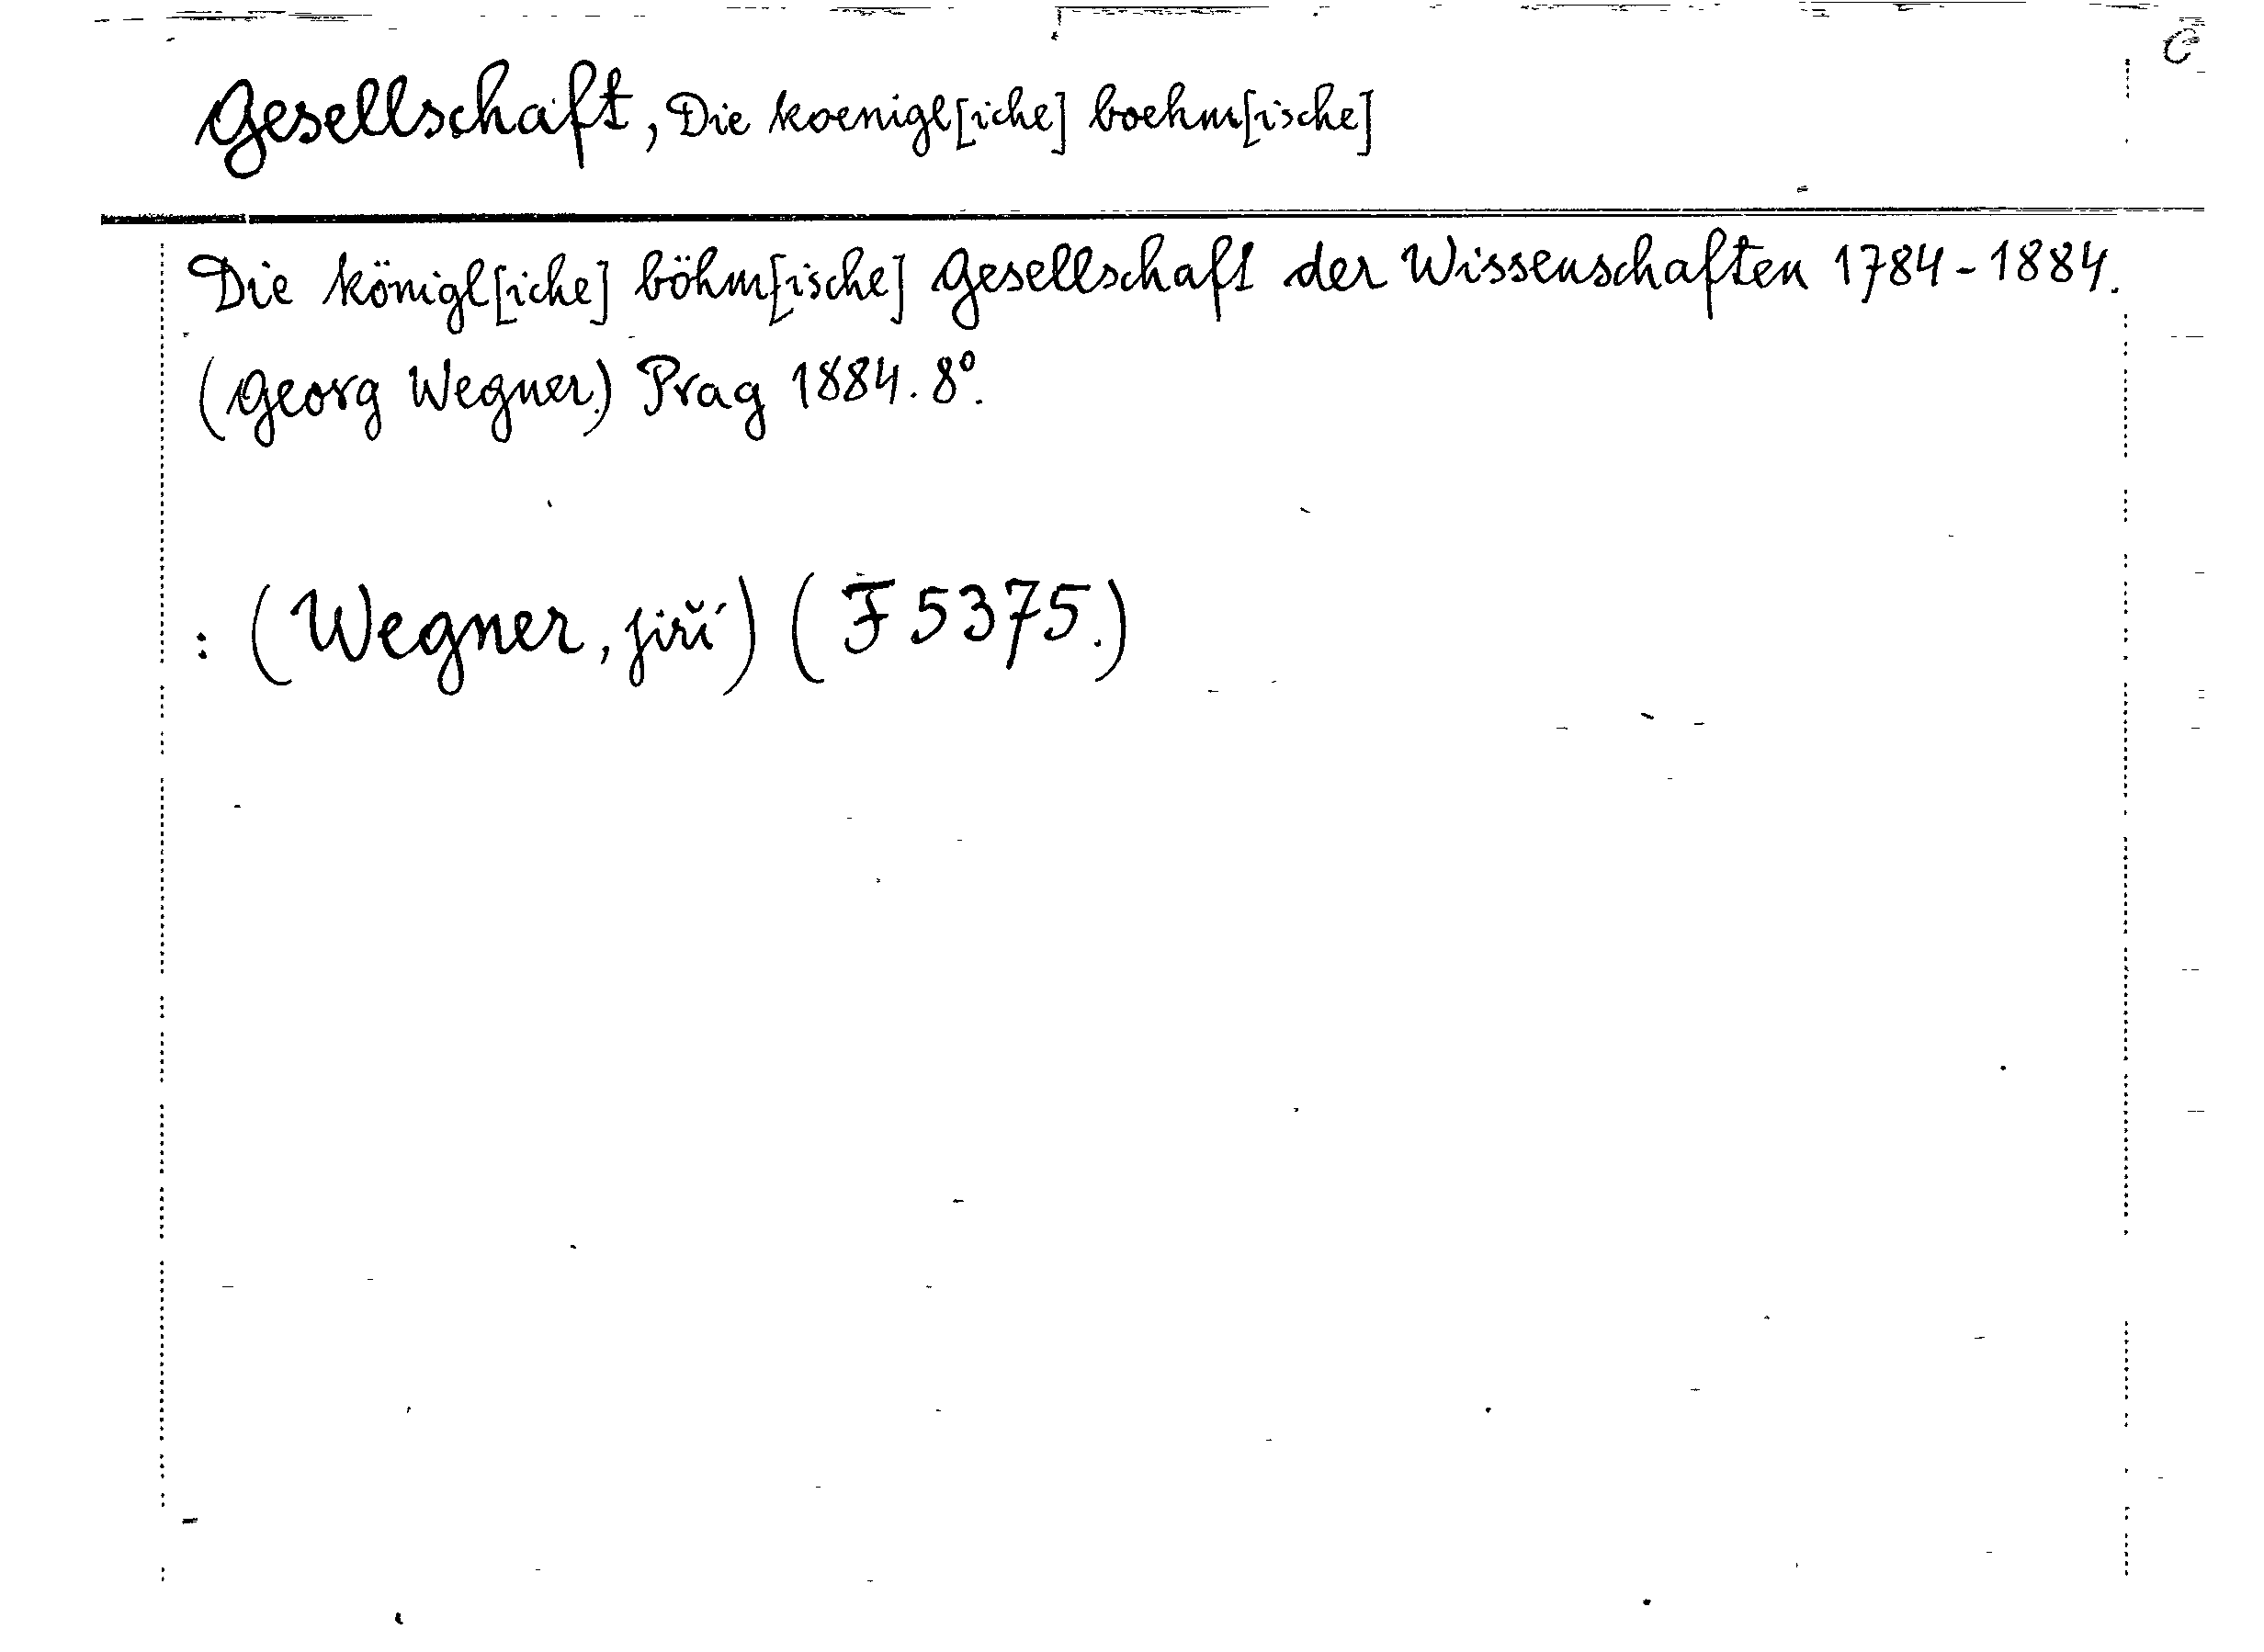 Gesellschaft, Die koenigl[iche] boehm[ische]
Die königl[iche] böhm[ische] Gesellschaft der Wissenschaften 1784-1884.
(Georg Wegner.) Prag 1884. 8°.
: (Wegner, Jiří) (F 5375.)